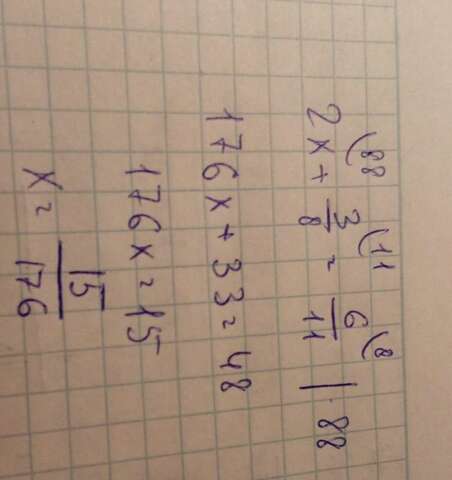 2x⁽⁸⁸ + 3/8⁽¹¹ = 6/11⁽⁸ | · 88
176x + 33 = 48
176x = 15
x = 15/176